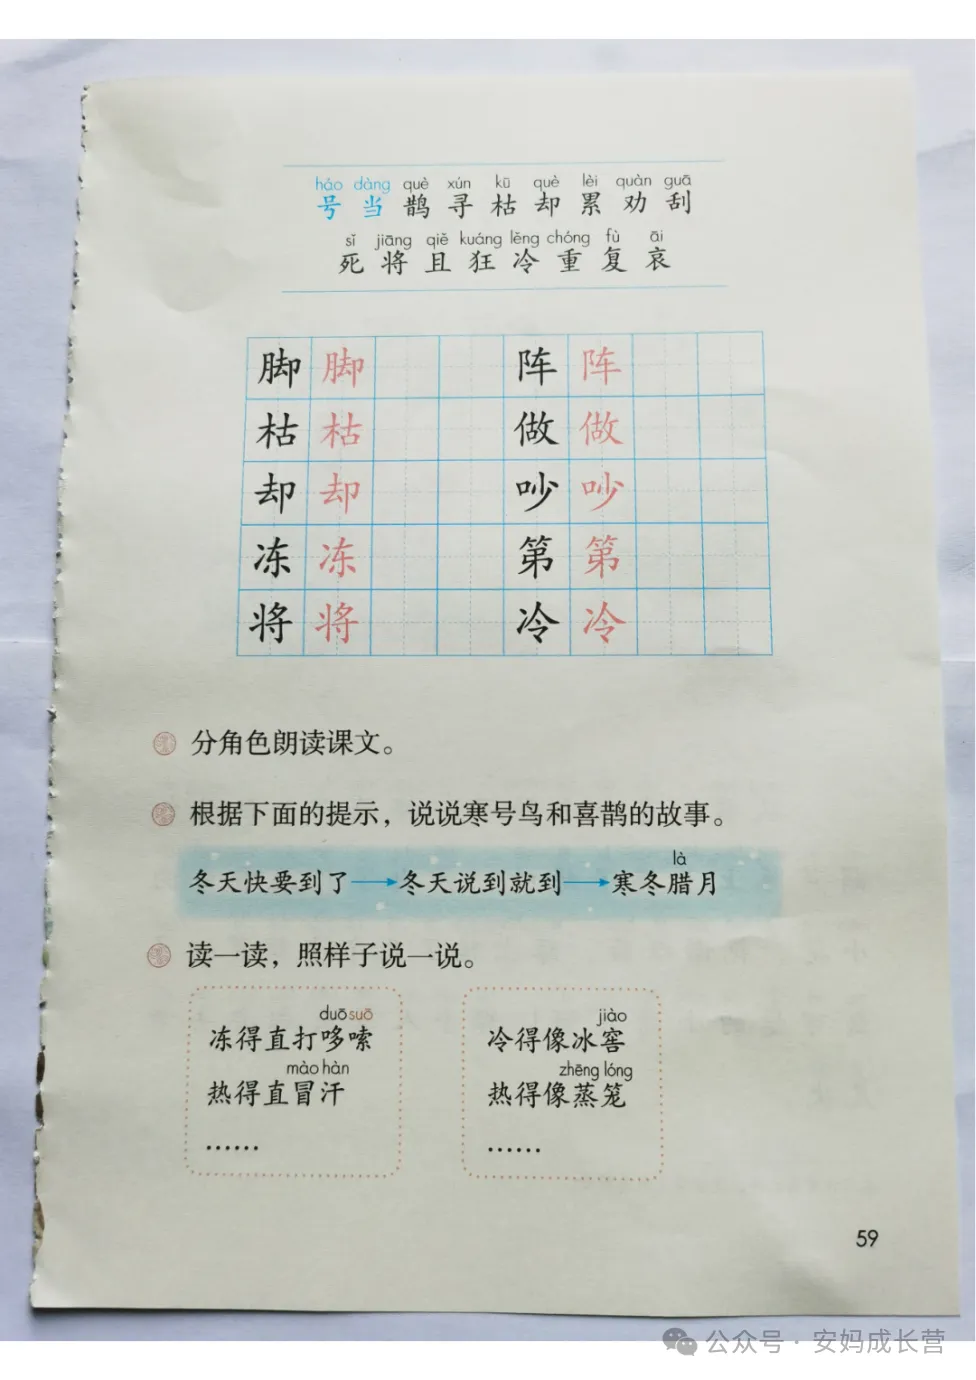 háo dàng què xún kū què lèi quàn guā
号 当 鹊 寻 枯 却 累 劝 刮
sǐ jiāng qiě kuáng lěng chóng fù āi
死 将 且 狂 冷 重 复 哀
脚 脚 阵 阵
枯 枯 做 做
却 却 吵 吵
冻 冻 第 第
将 将 冷 冷
分角色朗读课文。
根据下面的提示，说说寒号鸟和喜鹊的故事。
là
冬天快要到了→冬天说到就到→寒冬腊月
读一读，照样子说一说。
duō suō
冻得直打哆嗦
mào hàn
热得直冒汗
……
jiào
冷得像冰窖
zhēng lóng
热得像蒸笼
……
59
公众号·安妈成长营